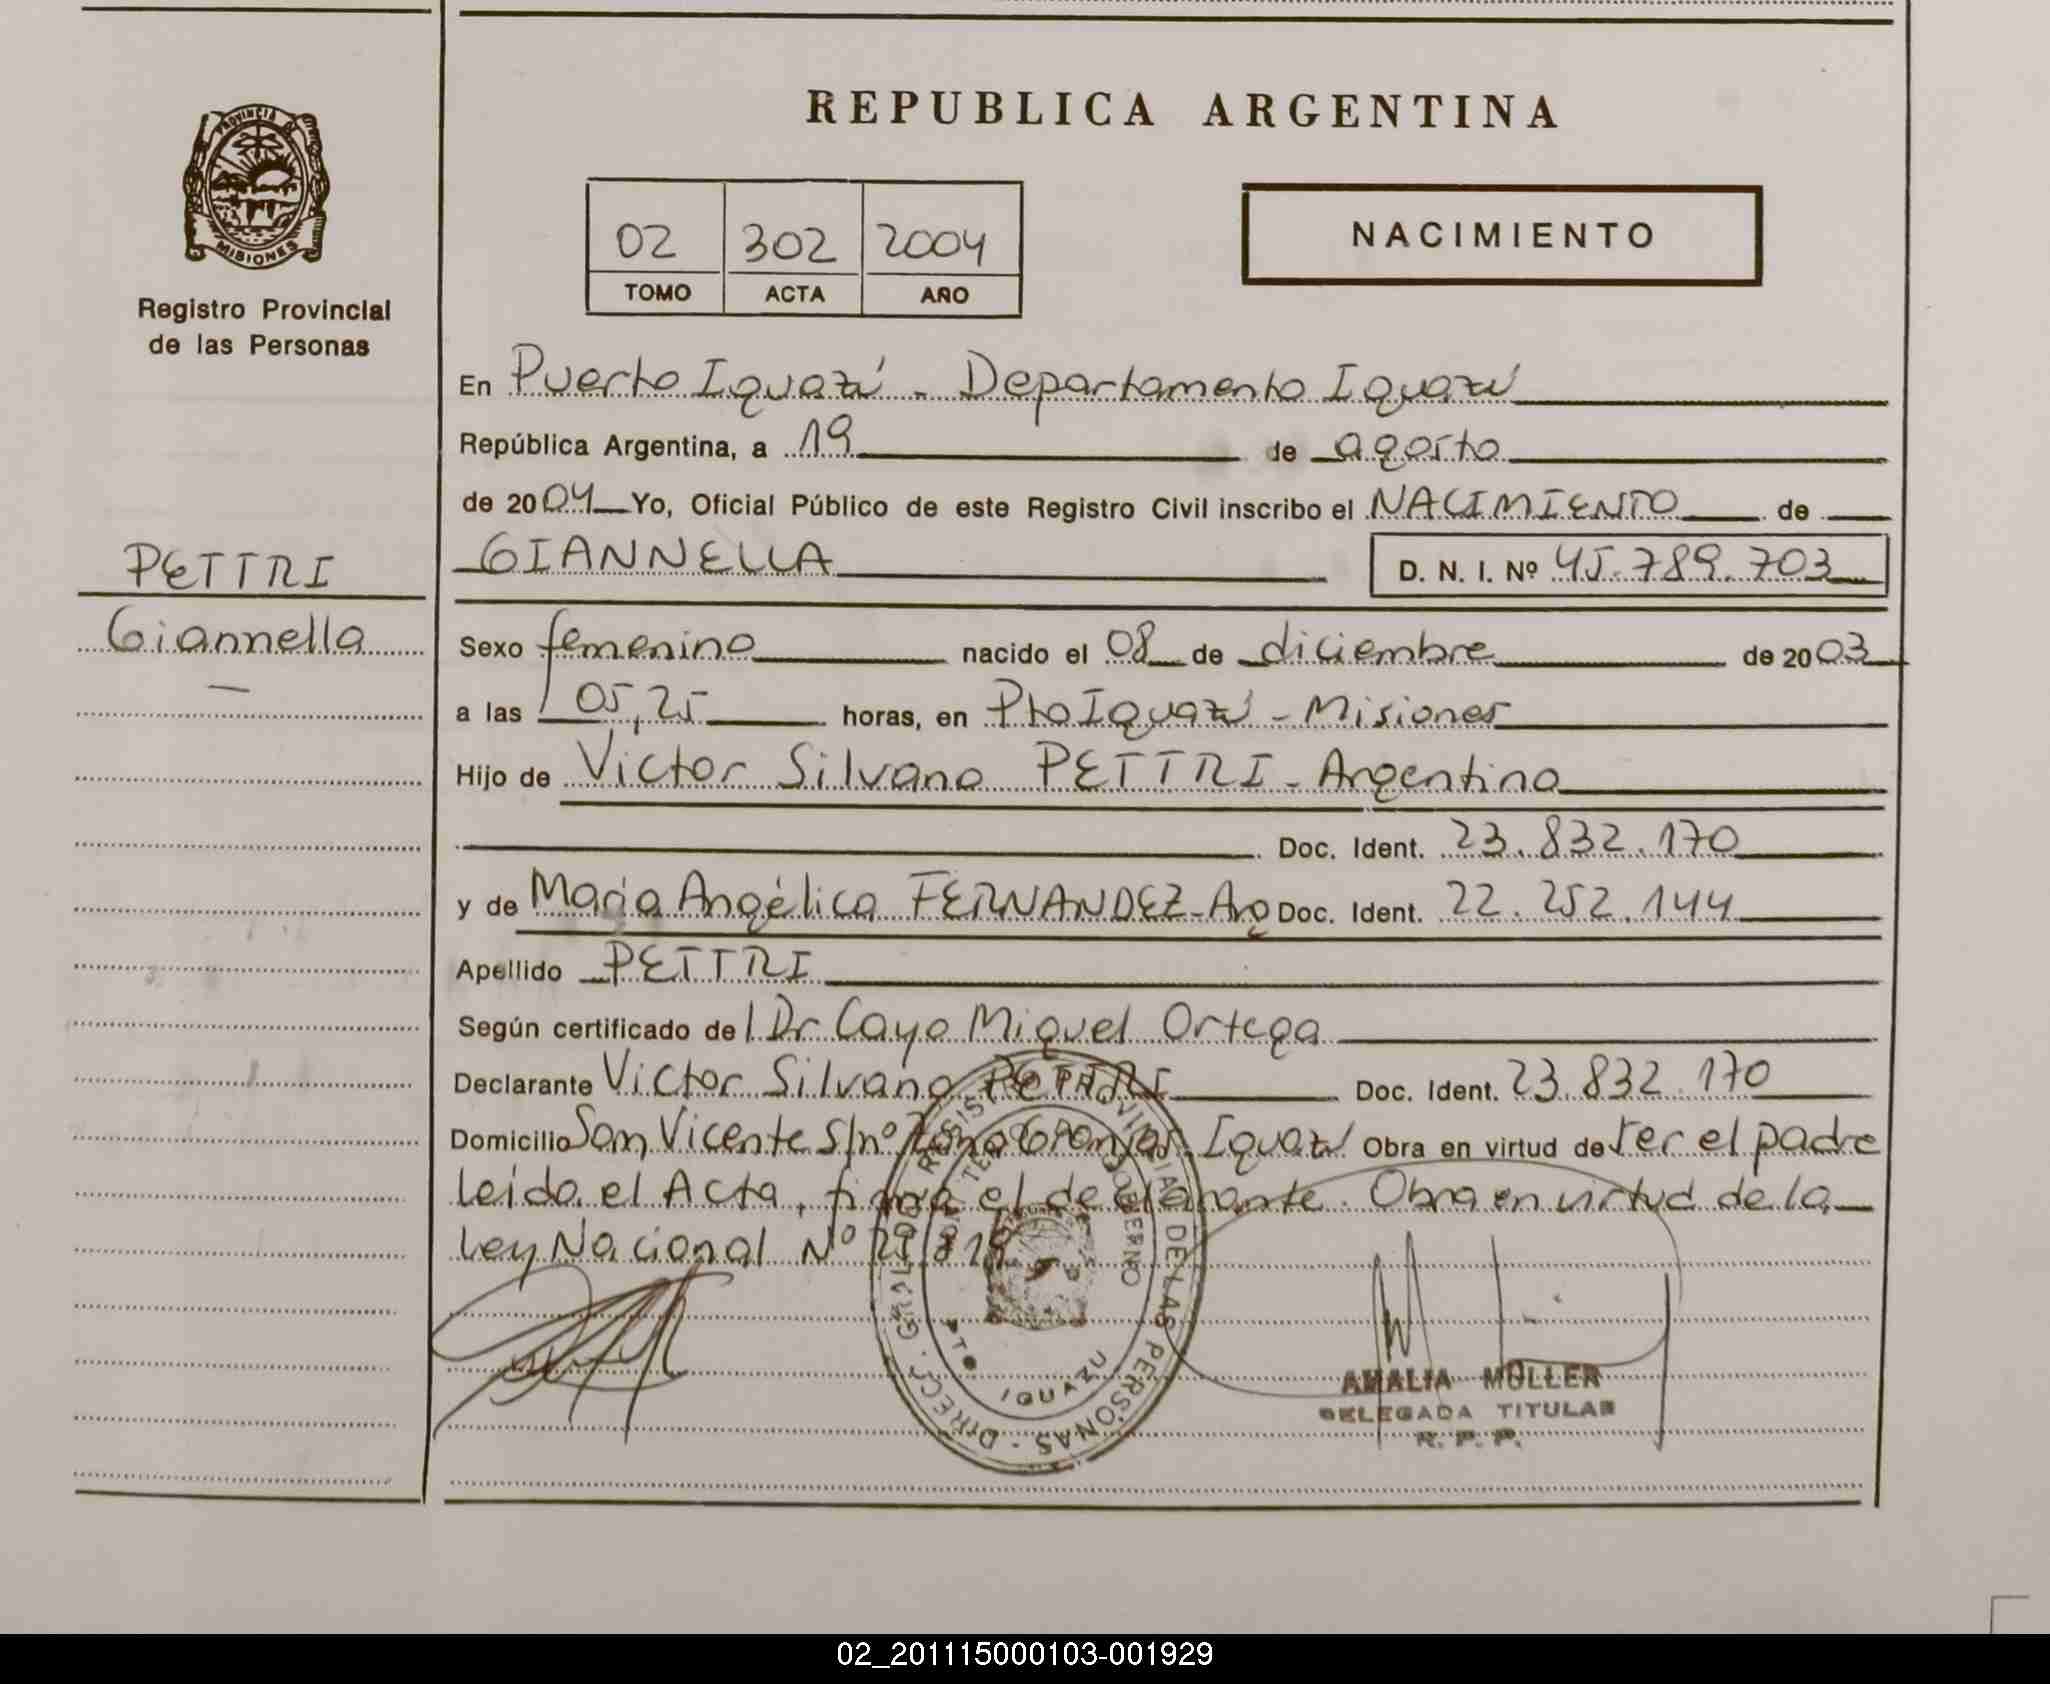 REPUBLICA ARGENTINA
PROVINCIA DE
MISIONES
Registro Provincial
de las Personas
02 302 2004
TOMO ACTA AÑO
NACIMIENTO
En Puerto Iguazú - Departamento Iguazú
República Argentina, a 19 de agosto
de 2004 Yo, Oficial Público de este Registro Civil inscribo el NACIMIENTO de
GIANNELLA D. N. I. Nº 45.789.703
PETTRI
Giannella
Sexo femenino nacido el 08 de diciembre de 2003
a las 05,25 horas, en Pto Iguazú - Misiones
Hijo de Victor Silvano PETTRI - Argentino
Doc. Ident. 23.832.170
y de María Angélica FERNANDEZ - Arg Doc. Ident. 22.252.144
Apellido PETTRI
Según certificado del Dr Cayo Miguel Ortega
Declarante Victor Silvano PETTRI Doc. Ident. 23.832.170
Domicilio San Vicente S/nº Zona Granjas Iguazú Obra en virtud de ser el padre
leida el Acta, firma el declarante. Obra en virtud de la
Ley Nacional Nº
DIREC. GRAL. DEL REGISTRO PROVINCIAL DE LAS PERSONAS
GOBIERNO
PTO IGUAZU
AMALIA MULLER
DELEGADA TITULAR
R. P. P.
02_201115000103-001929